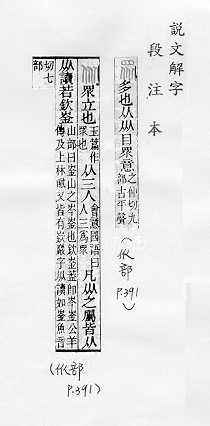 說文解字
段注本
多也从㐺目眾意之仲切九
部古平聲
(㐺部
P.391)
眾立也玉篇作
眾也从三人會意國語曰
人三為眾凡㐺之屬皆从
㐺讀若欽崟山部曰崟山之岑崟也欽崟蓋即岑崟公羊
傳及上林賦又皆有嶔巖字㐺讀如崟魚音
切七
部
(㐺部
P.391)